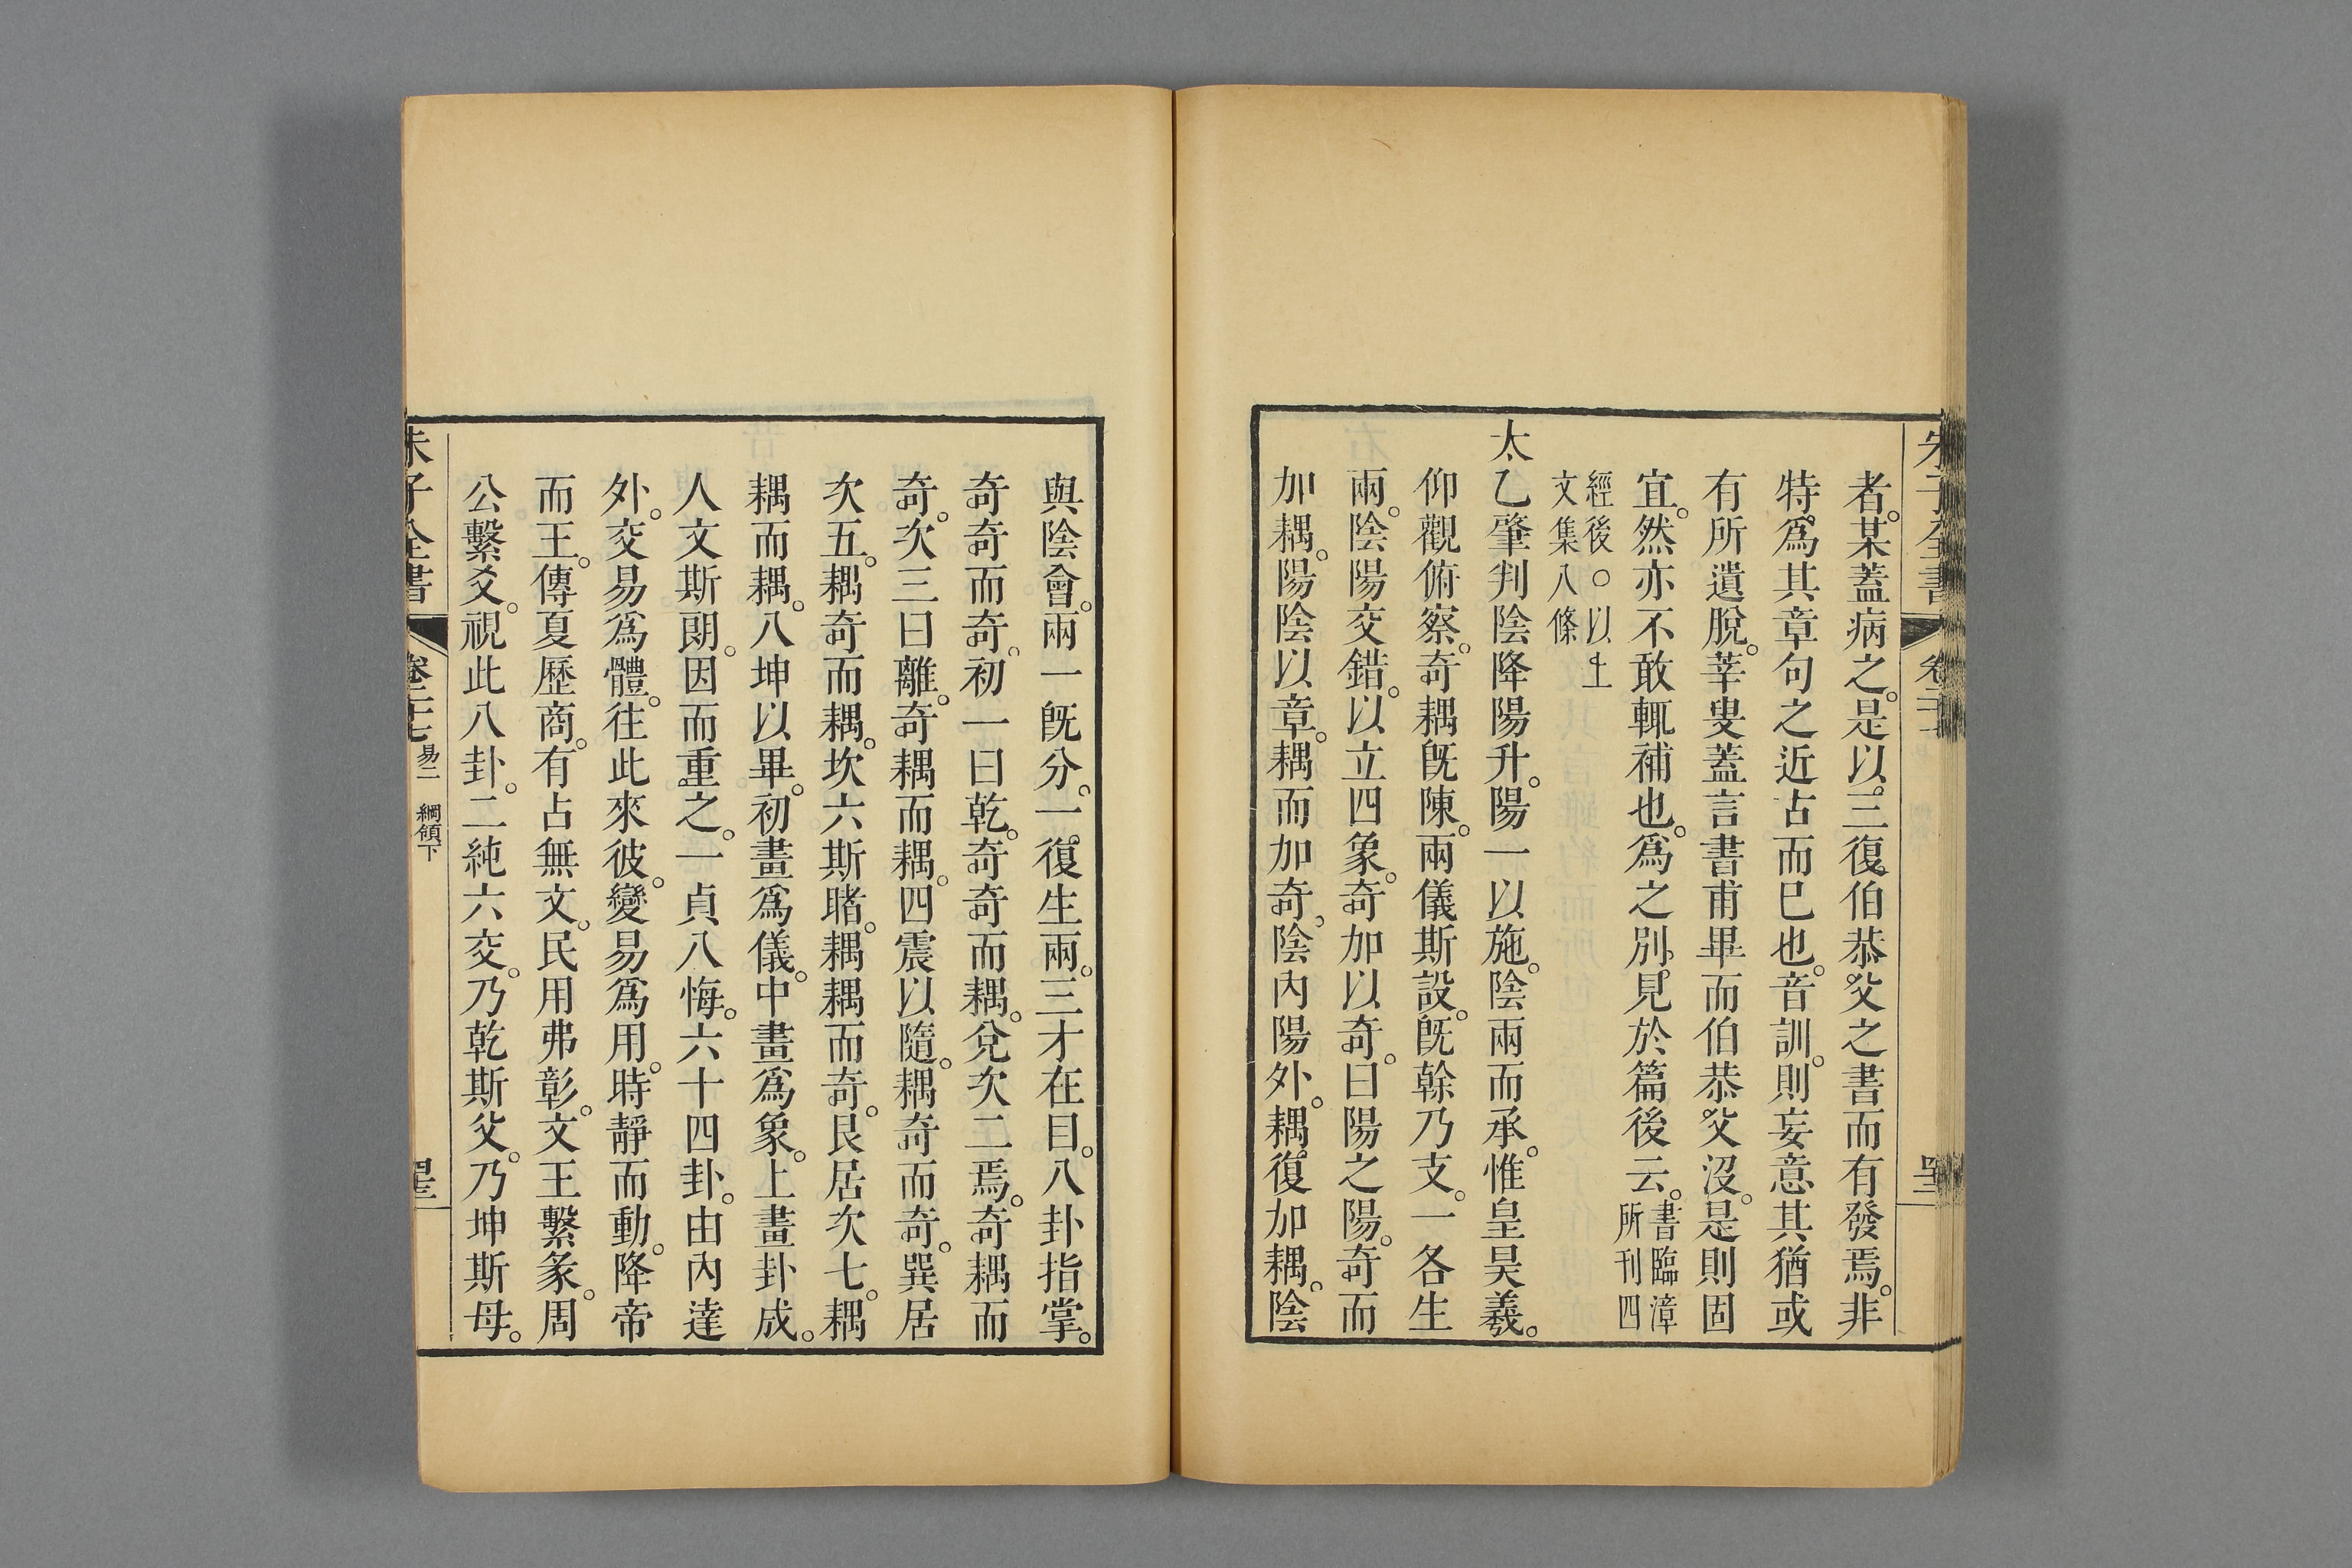 者。某蓋病之。是以三復伯恭父之書而有發焉。非
特爲其章句之近古而已也。音訓。則妄意其猶或
有所遺脫。莘叟蓋言書甫畢而伯恭父沒。是則固
宜。然亦不敢輒補也。爲之別見於篇後云。書臨漳
所刊四
經後○以上
文集八條
太乙肇判陰降陽升。陽一以施。陰兩而承。惟皇昊羲。
仰觀俯察。奇耦旣陳。兩儀斯設。旣榦乃支。一各生
兩。陰陽交錯。以立四象。奇加以奇。曰陽之陽。奇而
加耦。陽陰以章。耦而加奇。陰內陽外。耦復加耦。陰
與陰會。兩一旣分。一復生兩。三才在目。八卦指掌。
奇奇而奇。初一曰乾。奇奇而耦。兌次二焉。奇耦而
奇。次三曰離。奇耦而耦。四震以隨。耦奇而奇。巽居
次五。耦奇而耦。坎六斯睹。耦耦而奇。艮居次七。耦
耦而耦。八坤以畢。初畫爲儀。中畫爲象。上畫卦成。
人文斯朗。因而重之。一貞八悔。六十四卦。由內達
外。交易爲體。往此來彼。變易爲用。時靜而動。降帝
而王。傳夏歷商。有占無文。民用弗彰。文王繫彖。周
公繫爻。視此八卦。二純六交。乃乾斯父。乃坤斯母。
朱子全書
卷二十七
易二
綱領下